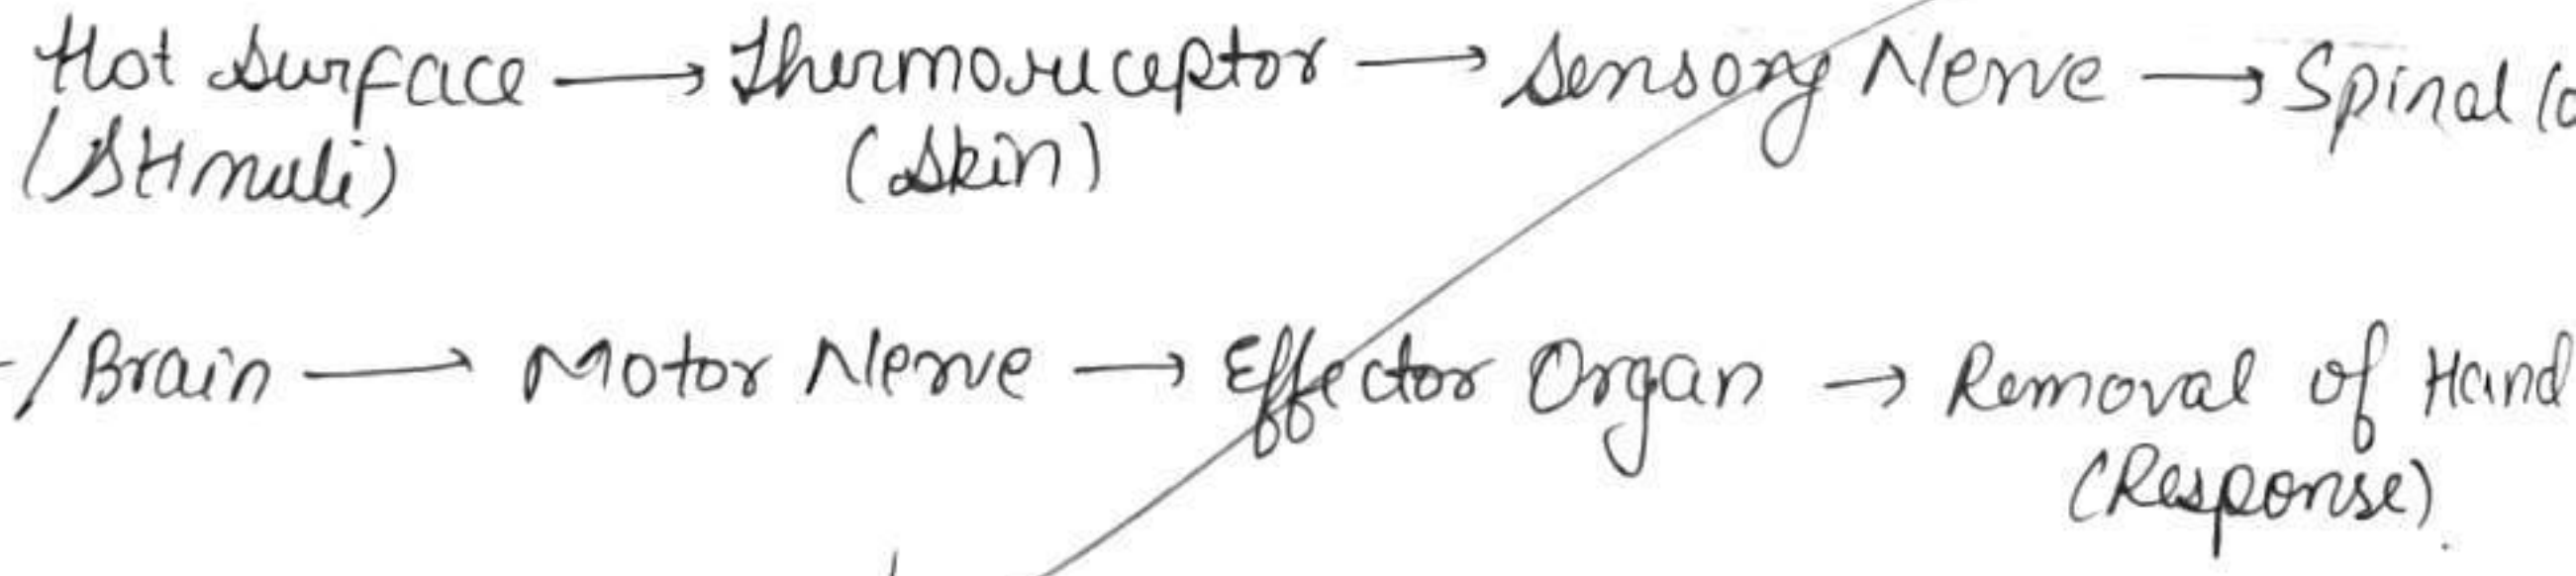 Hot surface → Thermoreceptor → Sensory Nerve → Spinal
(Stimuli) (Skin)
/Brain → Motor Nerve → Effector Organ → Removal of Hand
(Response).